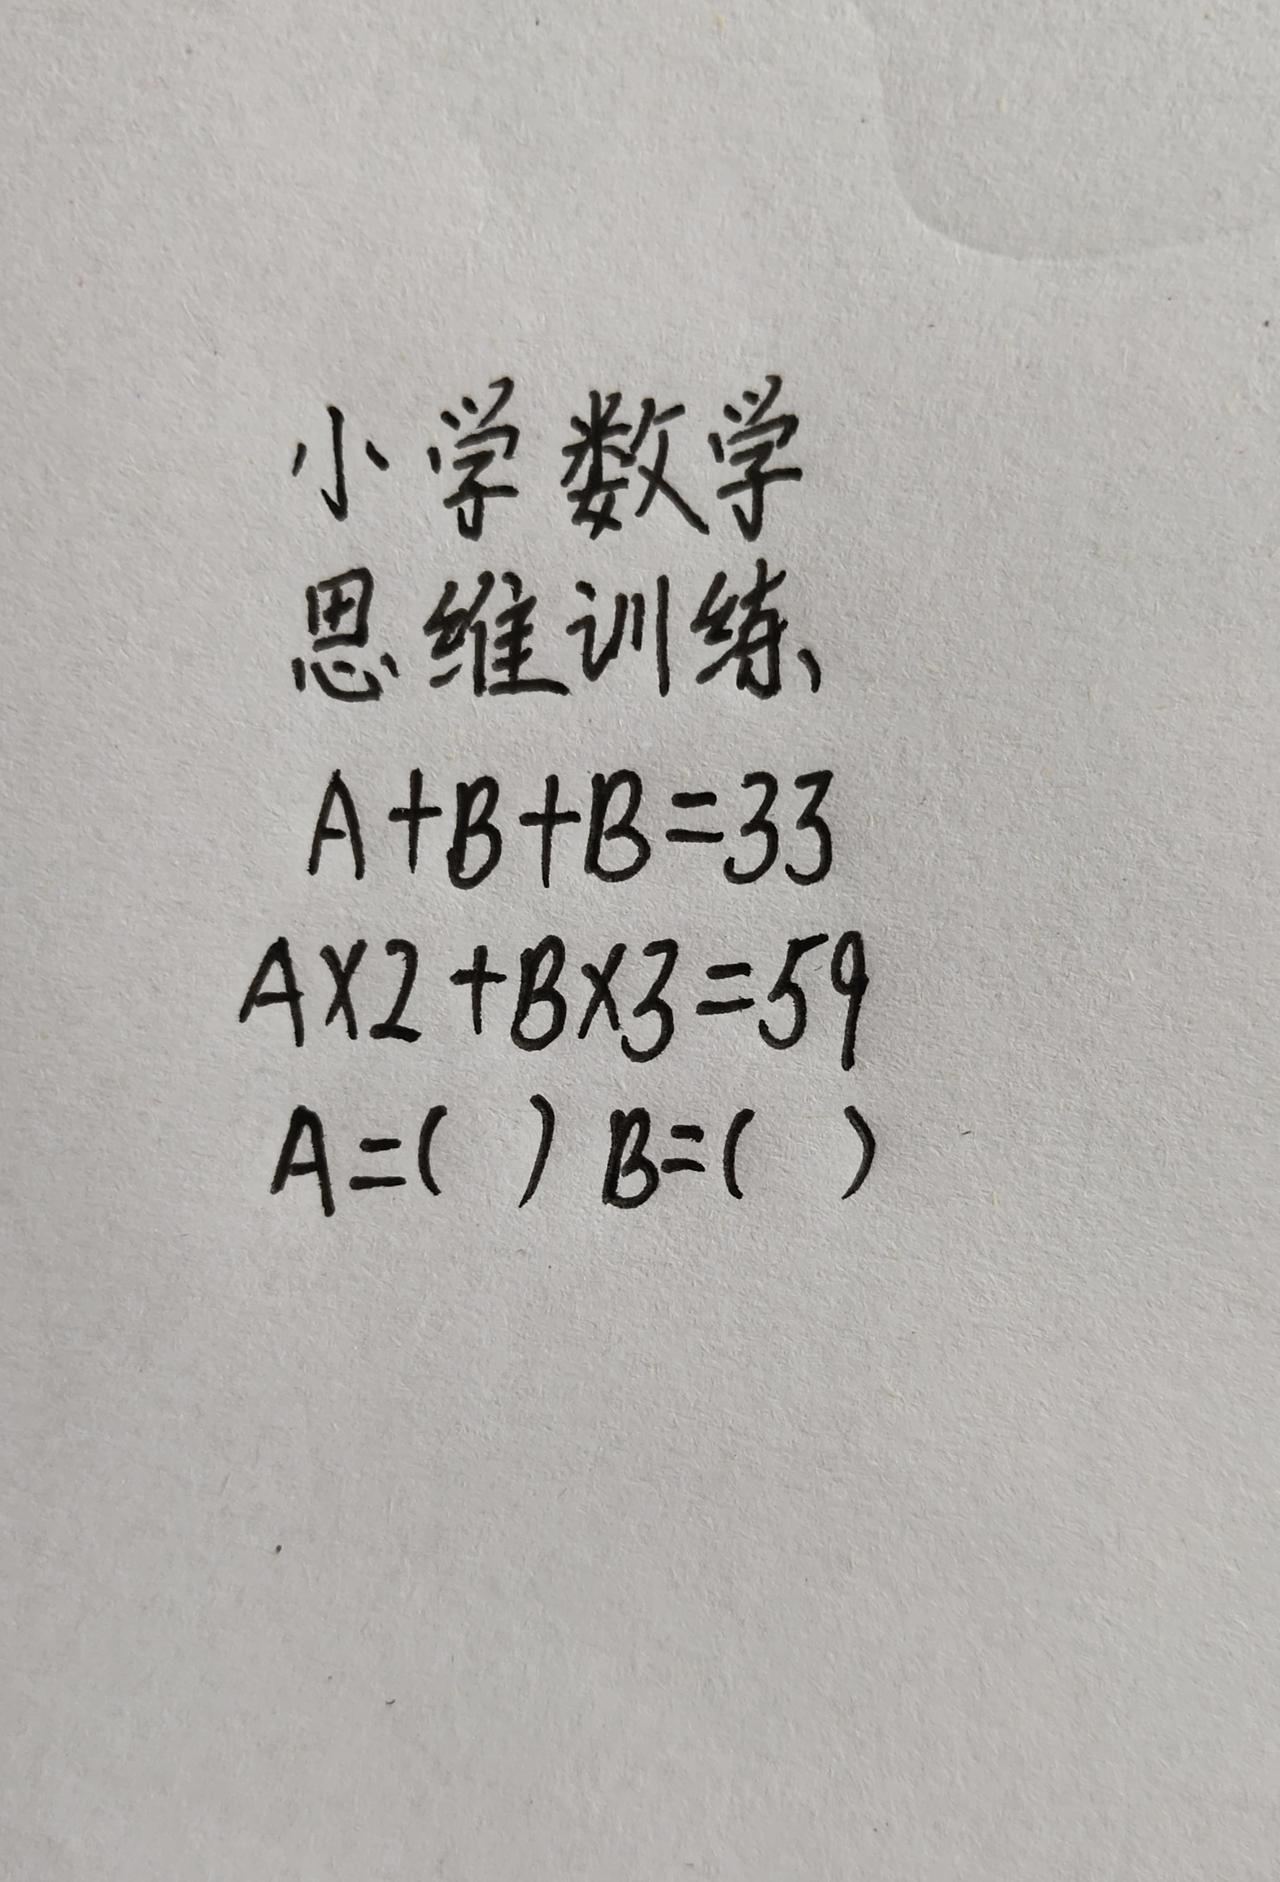 小学数学
思维训练、
A+B+B=33
A×2+B×3=59
A=( ) B=( )